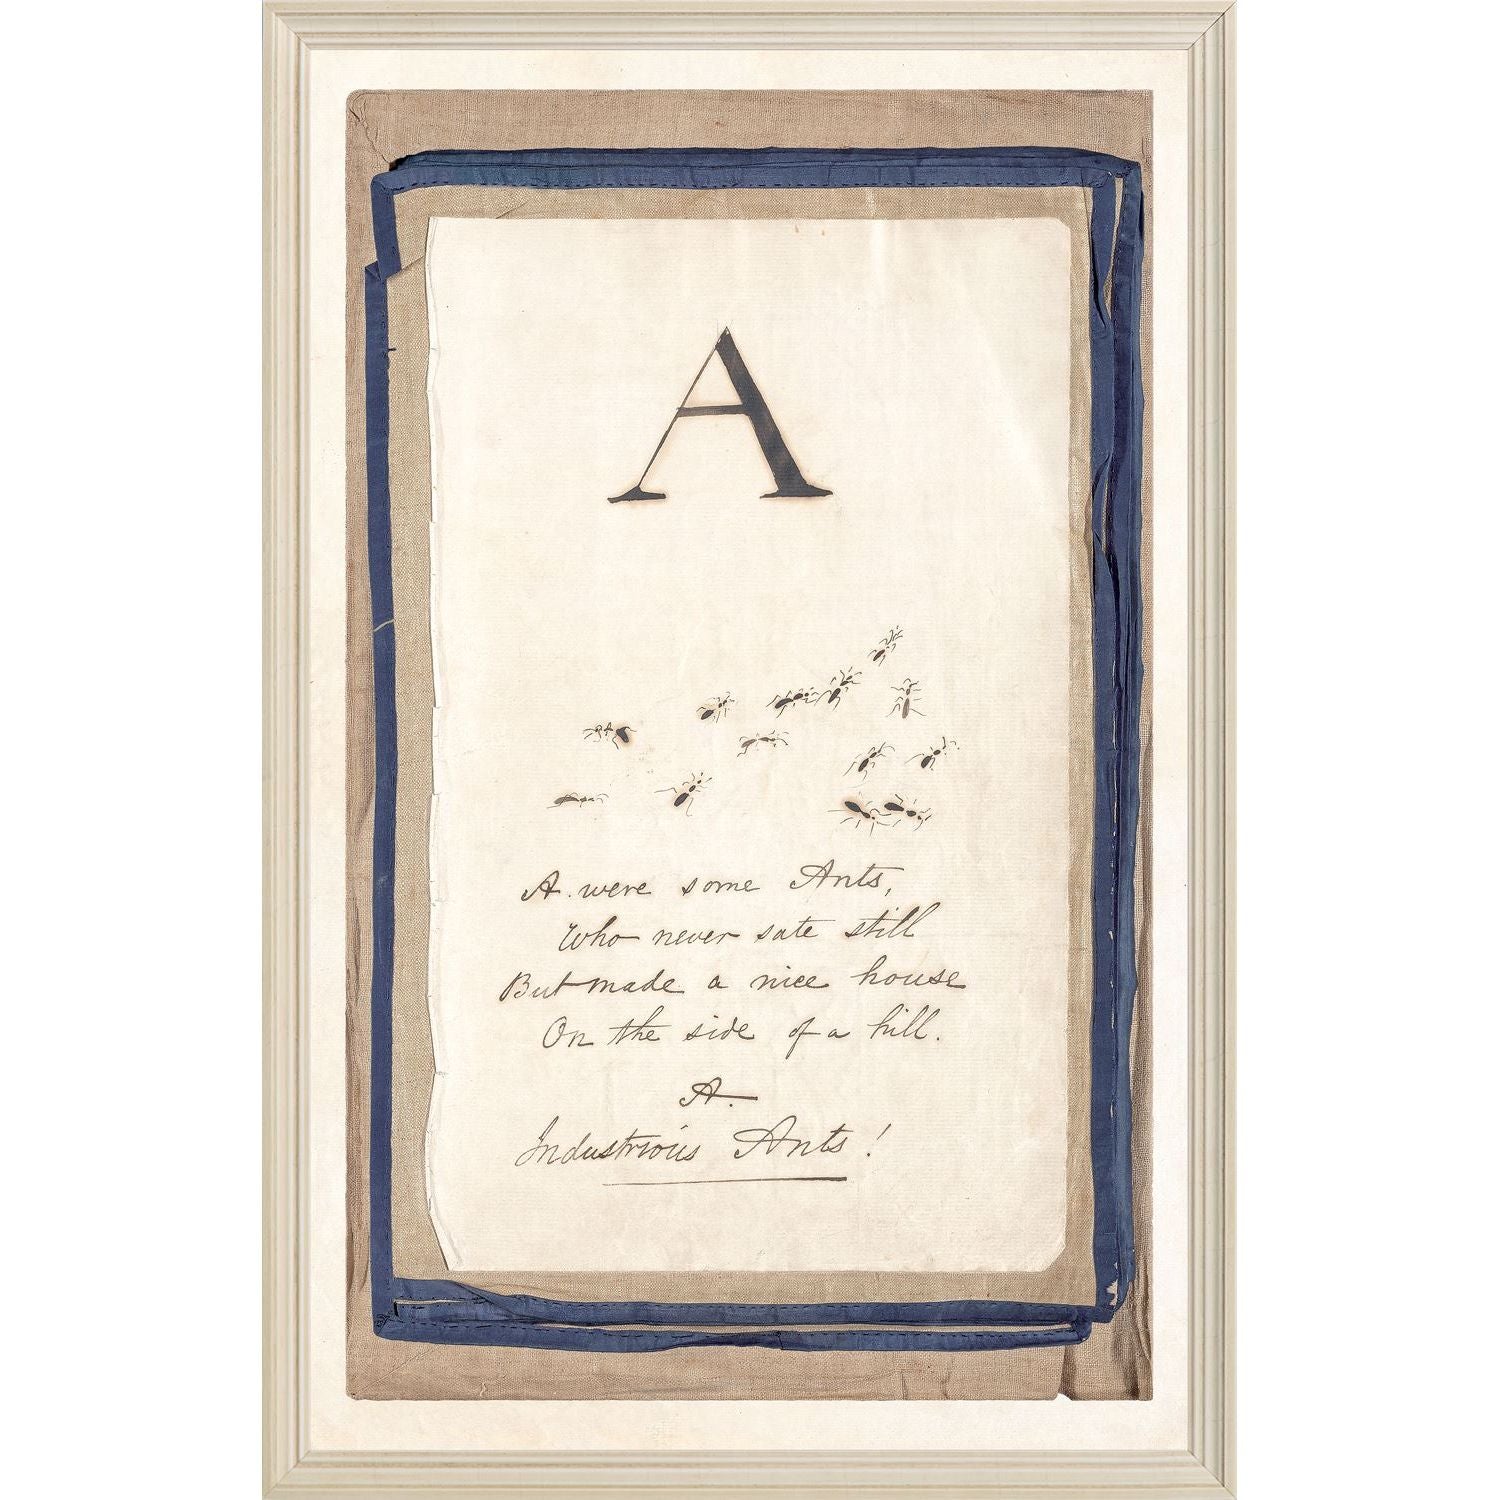 A
A. were some Ants,
Who never sate still
But made a nice house
On the side of a hill.
A.
Industrious Ants!